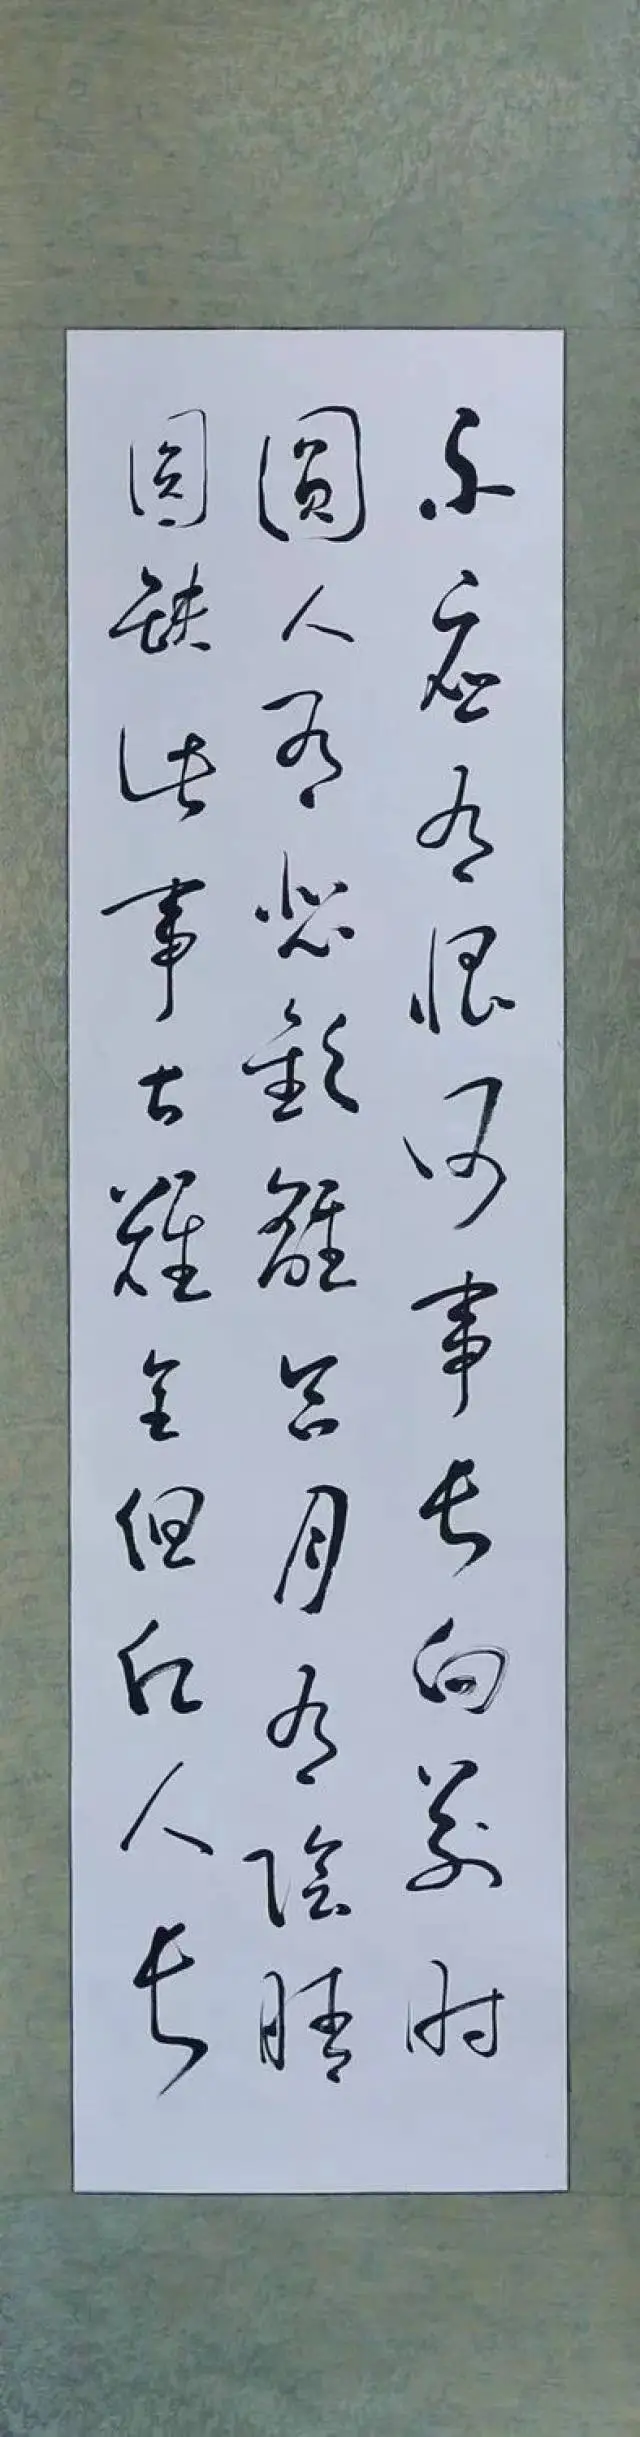 不应有恨何事长向别时
圆人有悲歡離合月有陰晴
圆缺此事古難全但願人長